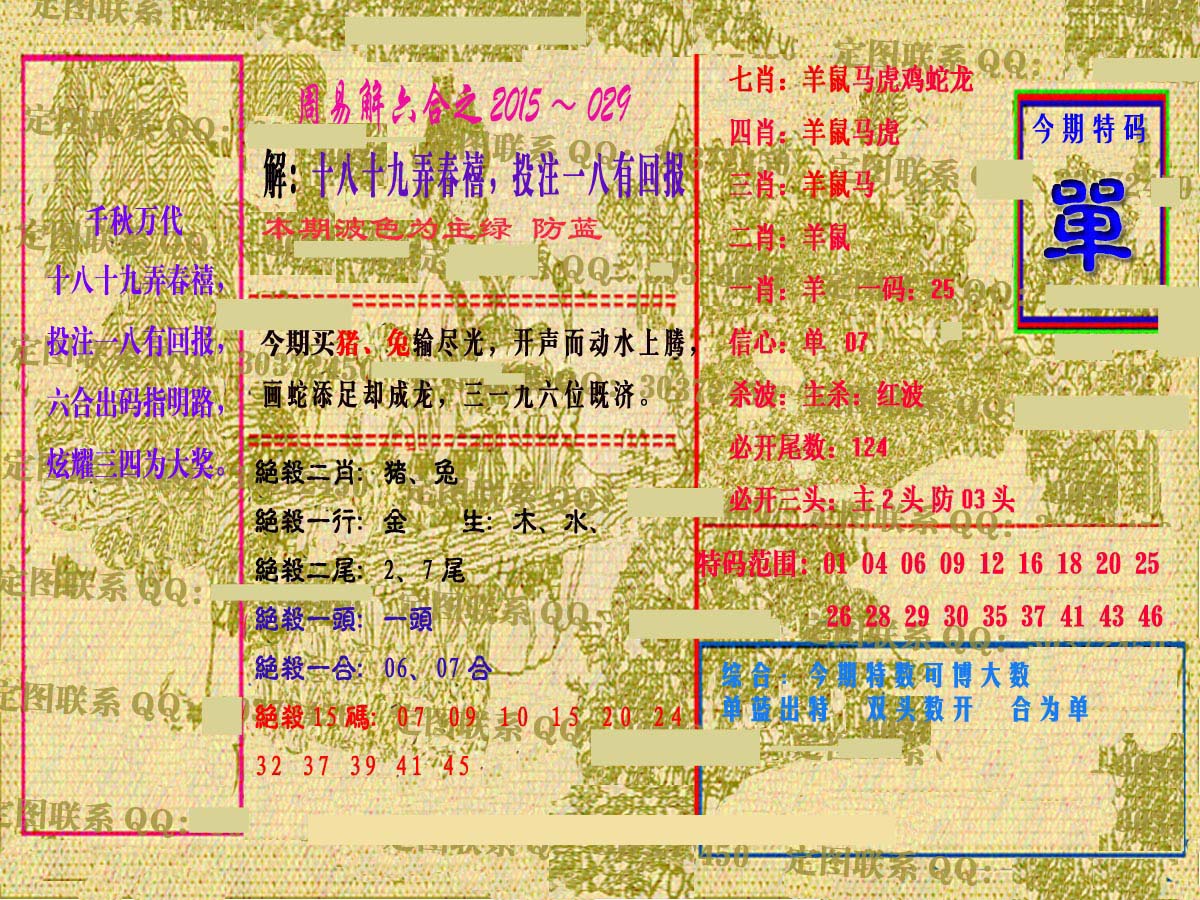 周易解六合之 2015～029
解：十八十九弄春禧，投注一八有回报
本期波色为主绿 防蓝
千秋万代
十八十九弄春禧，
投注一八有回报，
六合出码指明路，
炫耀三四为大奖。
今期买猪、兔输尽光，开声而动水上腾，
画蛇添足却成龙，三一九六位既济。
絕殺二肖：猪、兔
絕殺一行：金 生：木、水、
絕殺二尾：2、7尾
絕殺一頭：一頭
絕殺一合：06、07合
絕殺15碼：07 09 10 15 20 24
32 37 39 41 45
七肖：羊鼠马虎鸡蛇龙
四肖：羊鼠马虎
三肖：羊鼠马
二肖：羊鼠
一肖：羊 一码：25
信心：单 07
杀波：主杀：红波
必开尾数：124
必开三头：主2头防03头
今期特码
單
特码范围：01 04 06 09 12 16 18 20 25
26 28 29 30 35 37 41 43 46
综合：今期特数可博大数
单蓝出特 双头数开 合为单
定图联系 QQ：